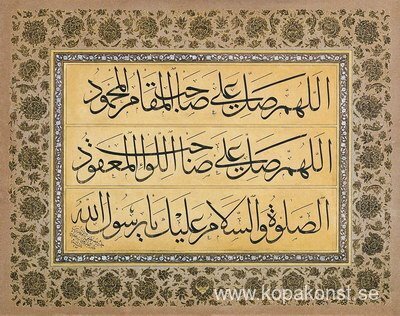 اللهم صل على صاحب المقام المحمود
اللهم صل على صاحب اللواء المعقود
الصلوة والسلام عليك يا رسول الله
www.kopakonst.se